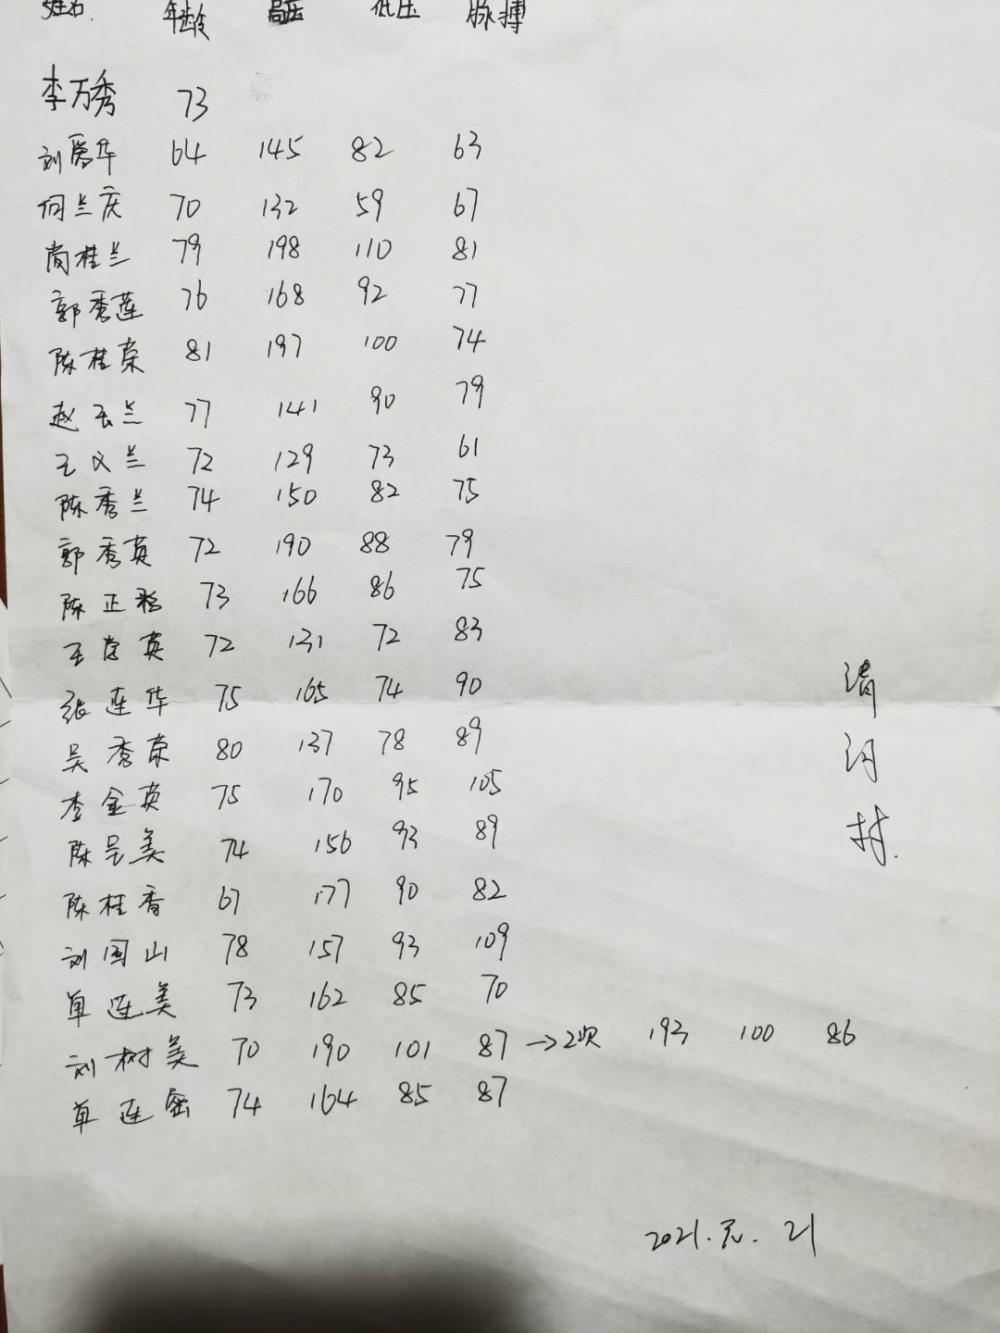 姓名 年龄 高压 低压 脉搏
李万秀 73
刘爱华 64 145 82 63
何兰庆 70 132 59 67
尚桂兰 79 198 110 81
郭秀莲 76 168 92 77
陈桂荣 81 197 100 74
赵玉兰 77 141 90 79
王义兰 72 129 73 61
陈秀兰 74 150 82 75
郭秀英 72 190 88 79
陈正 73 166 86 75
王 英 72 131 72 83
张连华 75 165 74 90
吴秀荣 80 137 78 89
李金英 75 170 95 105
陈 美 74 156 93 89
陈桂香 67 177 90 82
刘国山 78 157 93 109
单连美 73 162 85 70
刘树美 70 190 101 87 →2次 193 100 86
单连 74 164 85 87
清
河
村.
2021.元.21